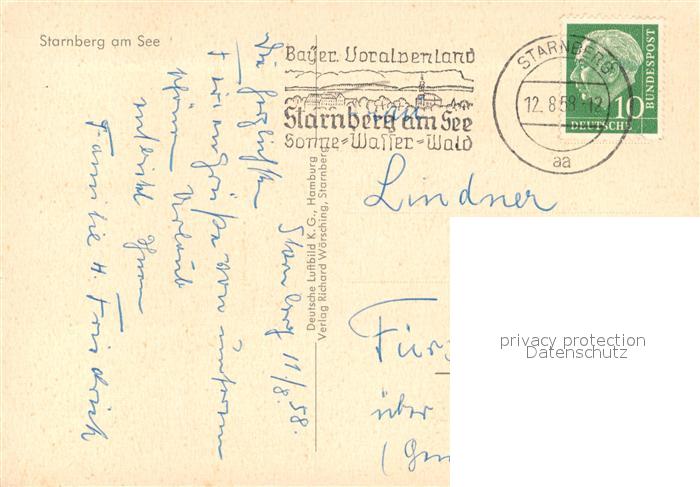 Starnberg am See
Bayer. Voralpenland
Starnberg am See
Sonne-Wasser-Wald
STARNBERG
12. 8. 58 - 12
aa
10
DEUTSCHE
BUNDESPOST
Deutsche Luftbild K. G., Hamburg
Verlag Richard Wörsching, Starnberg
Starnberg 11/8. 58.
Die herzlichsten
von unserem
schönen Urlaub
Ihnen
Familie H. Friedrich
Lindner
über
privacy protection
Datenschutz